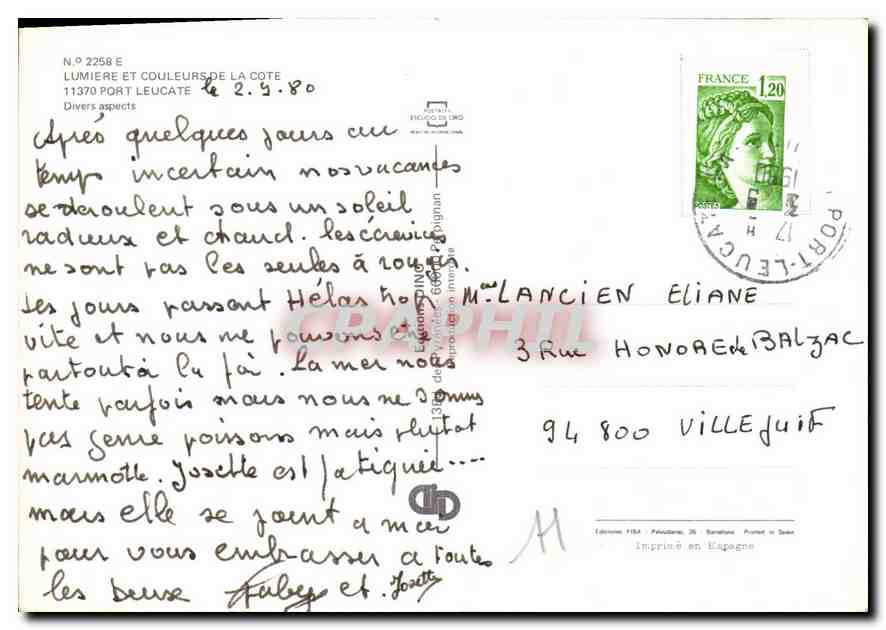 N.º 2258 E
LUMIERE ET COULEURS DE LA COTE
11370 PORT LEUCATE
Divers aspects
le 2.9.80
Après quelques jours au
temps incertain nos vacances
se déroulent sous un soleil
radieux et chaud. les écrevisses
ne sont pas les seules à rougir.
Les jours passent Hélas trop
vite et nous ne pouvons et
partout à la foi. La mer nous
tente parfois mais nous ne sommes
pas genre poissons mais plutot
marmotte. Josette est fatiguée....
mais elle se joint a moi
pour vous embrasser a toutes
les deux et Josette
ESCUDO DE ORO
Editions DINO
13Bd des Pyrénées - 66000 Perpignan
Reproduction interdite
CPAPHIL
FRANCE 1,20
PORT-LEUCA
17 H
LANCIEN ELIANE
3 Rue HONORE de BALZAC
94 800 VILLEJUIF
Ediciones FISA - Palaudarias, 26 - Barcelona Printed in Spain
Imprimé en Espagne